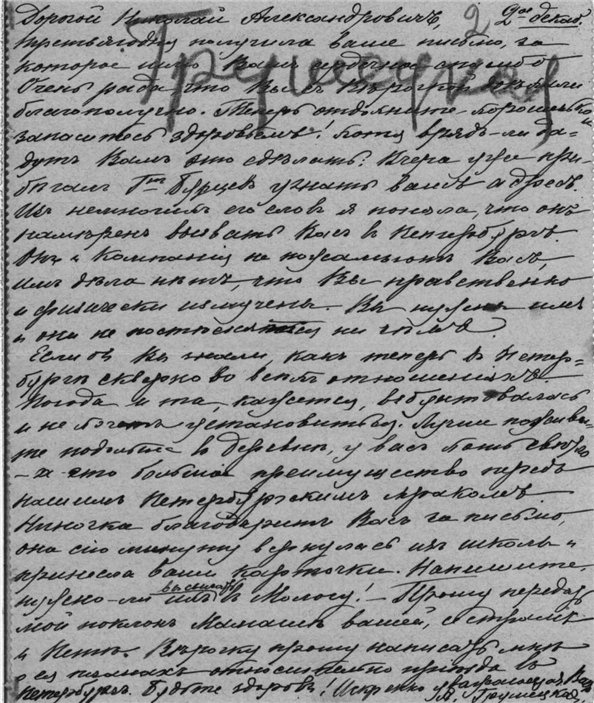 Дорогой Николай Александровичъ, 2го декаб.
Третьягодня получила ваше письмо, за
которое шлю Вамъ сердечное спасибо.
Очень рада что Вы съ Вѣрочкой доѣхали
благополучно. Теперь отдохните хорошенько
запаситесь здоровьемъ! хотя врядъ-ли да-
дутъ Вамъ это сдѣлать! Вчера уже при-
бѣгалъ Гнъ Бурцевъ узнать вашъ адресъ.
Изъ немногихъ его словъ я поняла, что онъ
намѣренъ вызвать Васъ въ Петербургъ.
Онъ и Компанія не пожалѣютъ Васъ,
имъ дѣла нѣтъ, что Вы нравственно
и физически измучены. Вы нужны имъ
и они не постѣсняются ни чѣмъ.
Если бъ Вы знали, какъ теперь въ Петер-
бургѣ скверно во всѣхъ отношеніяхъ.
Погода и та, кажется, взбунтовалась
и не можетъ установиться. Лучше поживи-
те подольше въ деревнѣ, у васъ хоть свѣтло
– а это большое преимущество передъ
нашимъ Петербургскимъ мракомъ.
Ниночка благодаритъ Васъ за письмо,
она сію минуту вернулась изъ школы и
принесла ваши карточки. Напишите
нужно-ли ихъ выслать въ Мологу! – Прошу передать
мой поклонъ Мамашѣ вашей, сестрамъ
и Петѣ. Вѣрочку прошу написать мнѣ
о ея планахъ относительно пріѣзда въ
Петербургъ. Будьте здоровы! Искренно уважающая Васъ
Грушецкая